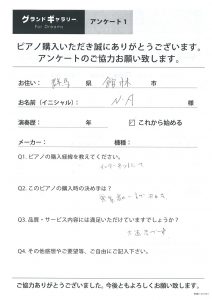 グランドギャラリー
For Dreams
アンケート1
ピアノ購入いただき誠にありがとうございます。
アンケートのご協力お願い致します。
お住い: 群馬 県 館林 市
お名前(イニシャル): N.A 様
演奏歴: 年 ☑ これから始める
メーカー: 機種:
Q1. ピアノの購入経緯を教えてください。
インターネットにて
Q2. このピアノの購入時の決め手は?
Q3. 品質・サービス内容には満足いただけていますでしょうか?
Q4. その他感想やご要望等、ご自由にご記入下さい。
ご協力ありがとうございました。今後ともよろしくお願い致します。